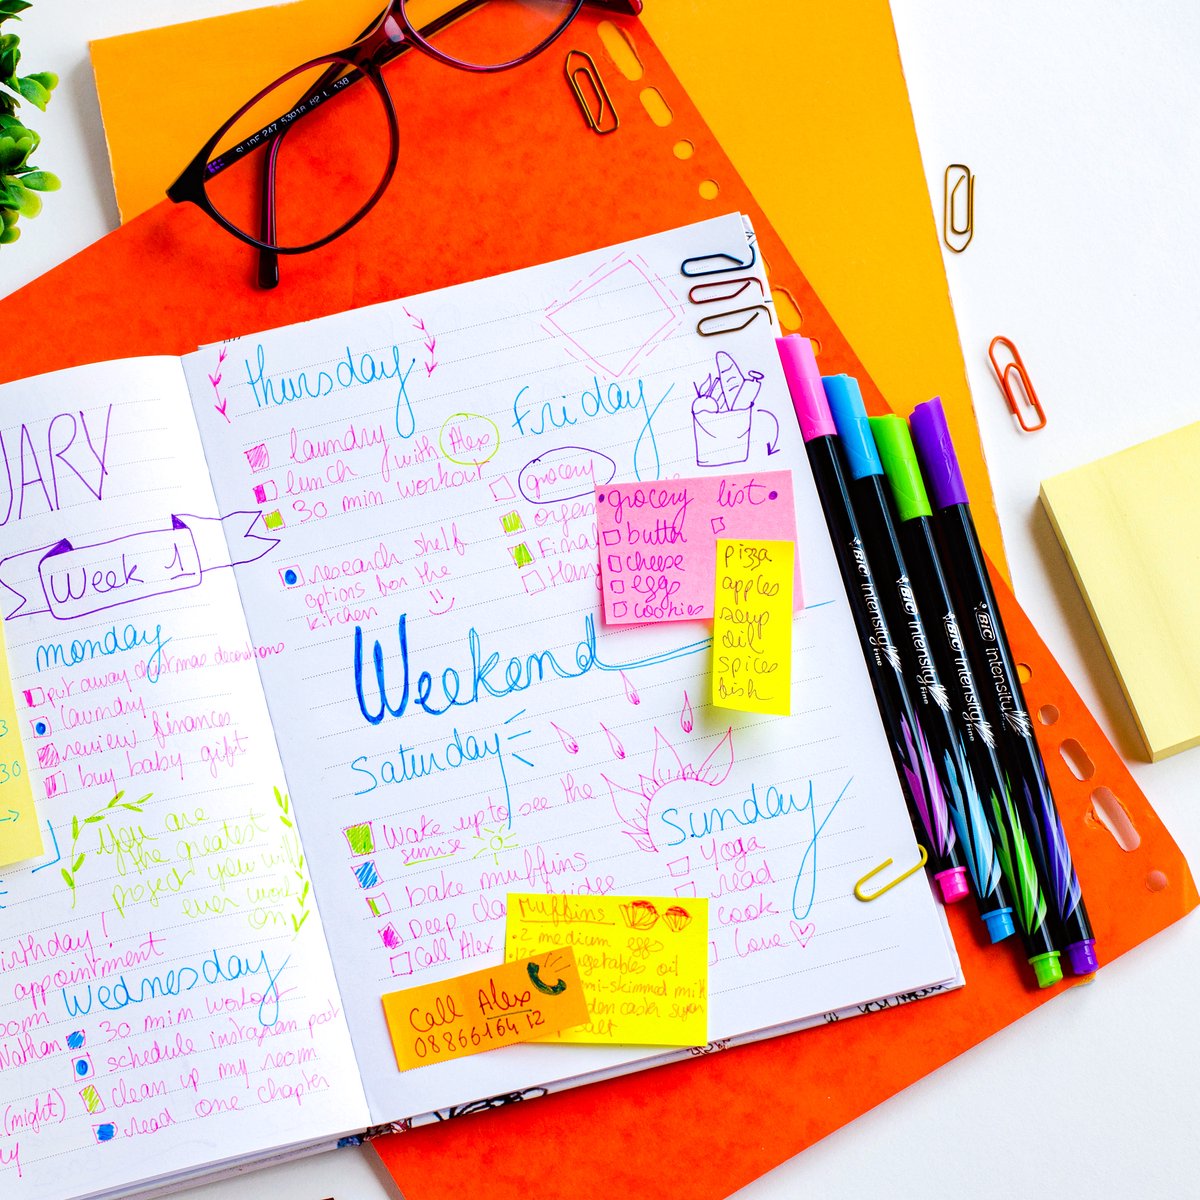 SLIDE 247 53018 H2 L 138
UARY
Week 1
monday
put away christmas decorations
laundry
review finances
buy baby gift
30
You are
the greatest
project you will
ever work
on
irthday!
appointment
Wednesday
oom
Nathan
30 min workout
schedule instagram post
clean up my room
read one chapter
(might)
Thursday
laundry
lunch with Alex
30 min workout
research shelf
options for the
kitchen
Friday
grocery
organ
Final
grocery list
butter
cheese
eggs
cookies
pizza
apples
soup
oil
spices
fish
Weekend
Saturday
Wake up to see the
sunrise
bake muffins
Deep cla
Call Alex
Sunday
Yoga
read
cook
Love
Muffins
2 medium eggs
vegetables oil
mi-skimmed milk
Call Alex
0886616412
BIC intensity
Fine
BIC intensity
Fine
BIC intensity
Fine
BIC intensity